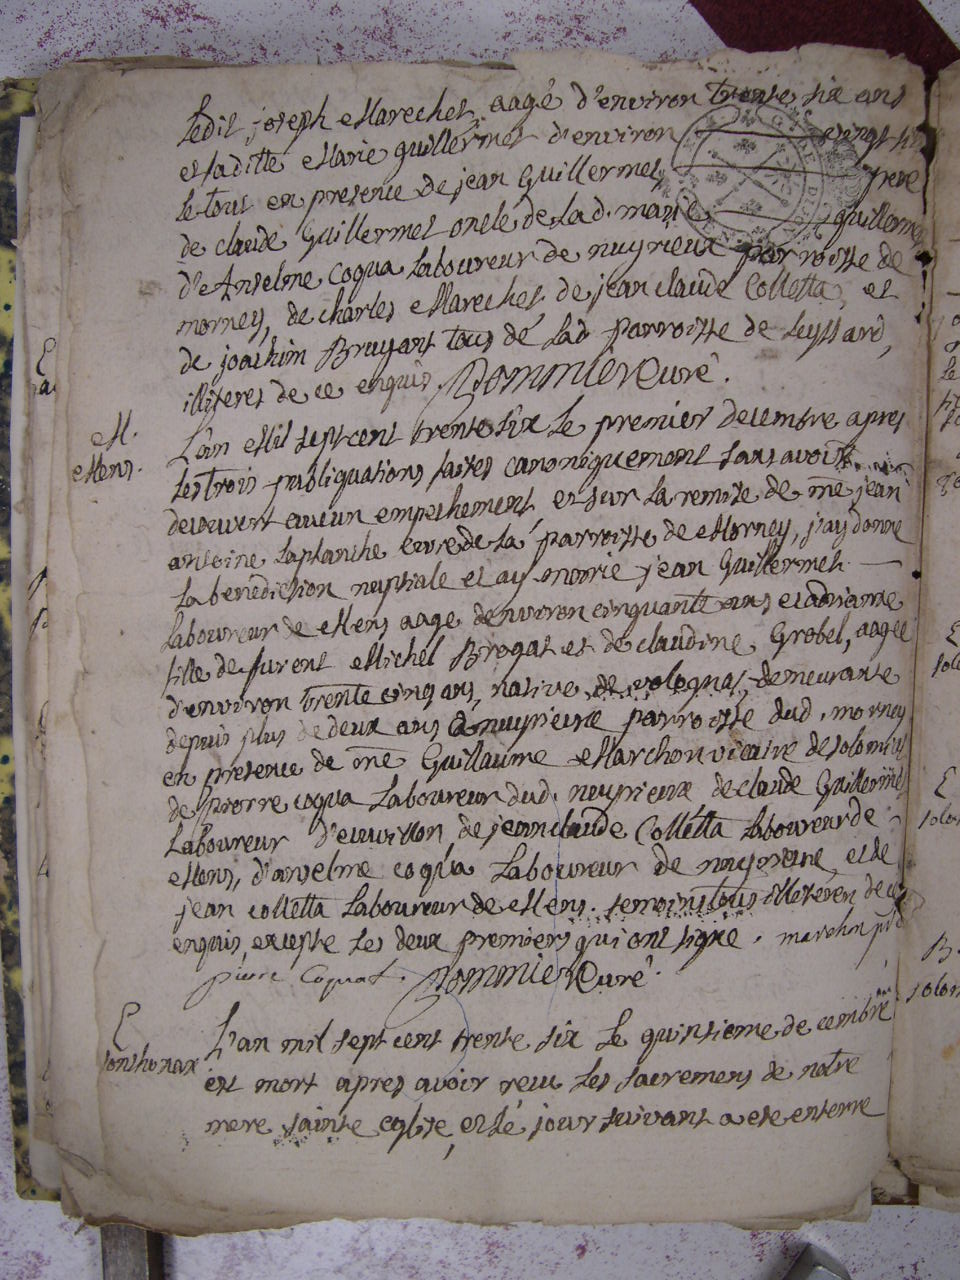 ledit joseph Marechet, aagé d'environ trente six ans
et laditte Marie guillermet d'environ vingt six
le tout en presence de jean Guillermet, frere
de claude Guillermet oncle de la d. marie guillermet
d'Anselme Coqua Laboureur de nuyrieux parroisse de
morney, de charles Marechet, de jean claude Colletta, et
de joachim Bruyant tous de lad parroisse de Leyssard,
illiteres de ce enquis Dommier Curé.
M.
Mens.
L'an Mil sept cent trente six le premier decembre apres
les trois publiquations faites canoniquement sans avoir
decouvert aucun empechement et sur la remise de mre jean
antoine laplanche curé de la parroisse de Morney, j'ay donné
la benediction nuptiale et ay marié jean Guillermet
laboureur de Mens aagé d'environ cinquante ans et
fille de furent Michel Brogat et de claudine Grobel, aagée
d'environ trente cinq ans, native de volognat, demeurante
depuis plus de deux ans a nuyrieux parroisse dud. morney
en presence de mre Guillaume Marchon vicaire de solomiat
de pierre coqua Laboureur dud. nuyrieux de claude Guillermet
Laboureur d'euvillon, de jean claude Colletta laboureur de
Mens, d'anselme coqua Laboureur de nuyrieux et de
jean colletta Laboureur de Mens. temoins tous illeteres de ce
enquis, excepte les deux premiers qui ont signé. marchon ptre
pierre Coquat. Dommier Curé.
E
sonthonax
L'an mil sept cent trente six le quinsieme decembre
est mort apres avoir receu les sacremens de notre
mere sainte eglise, et le jour suivant a ete enterré